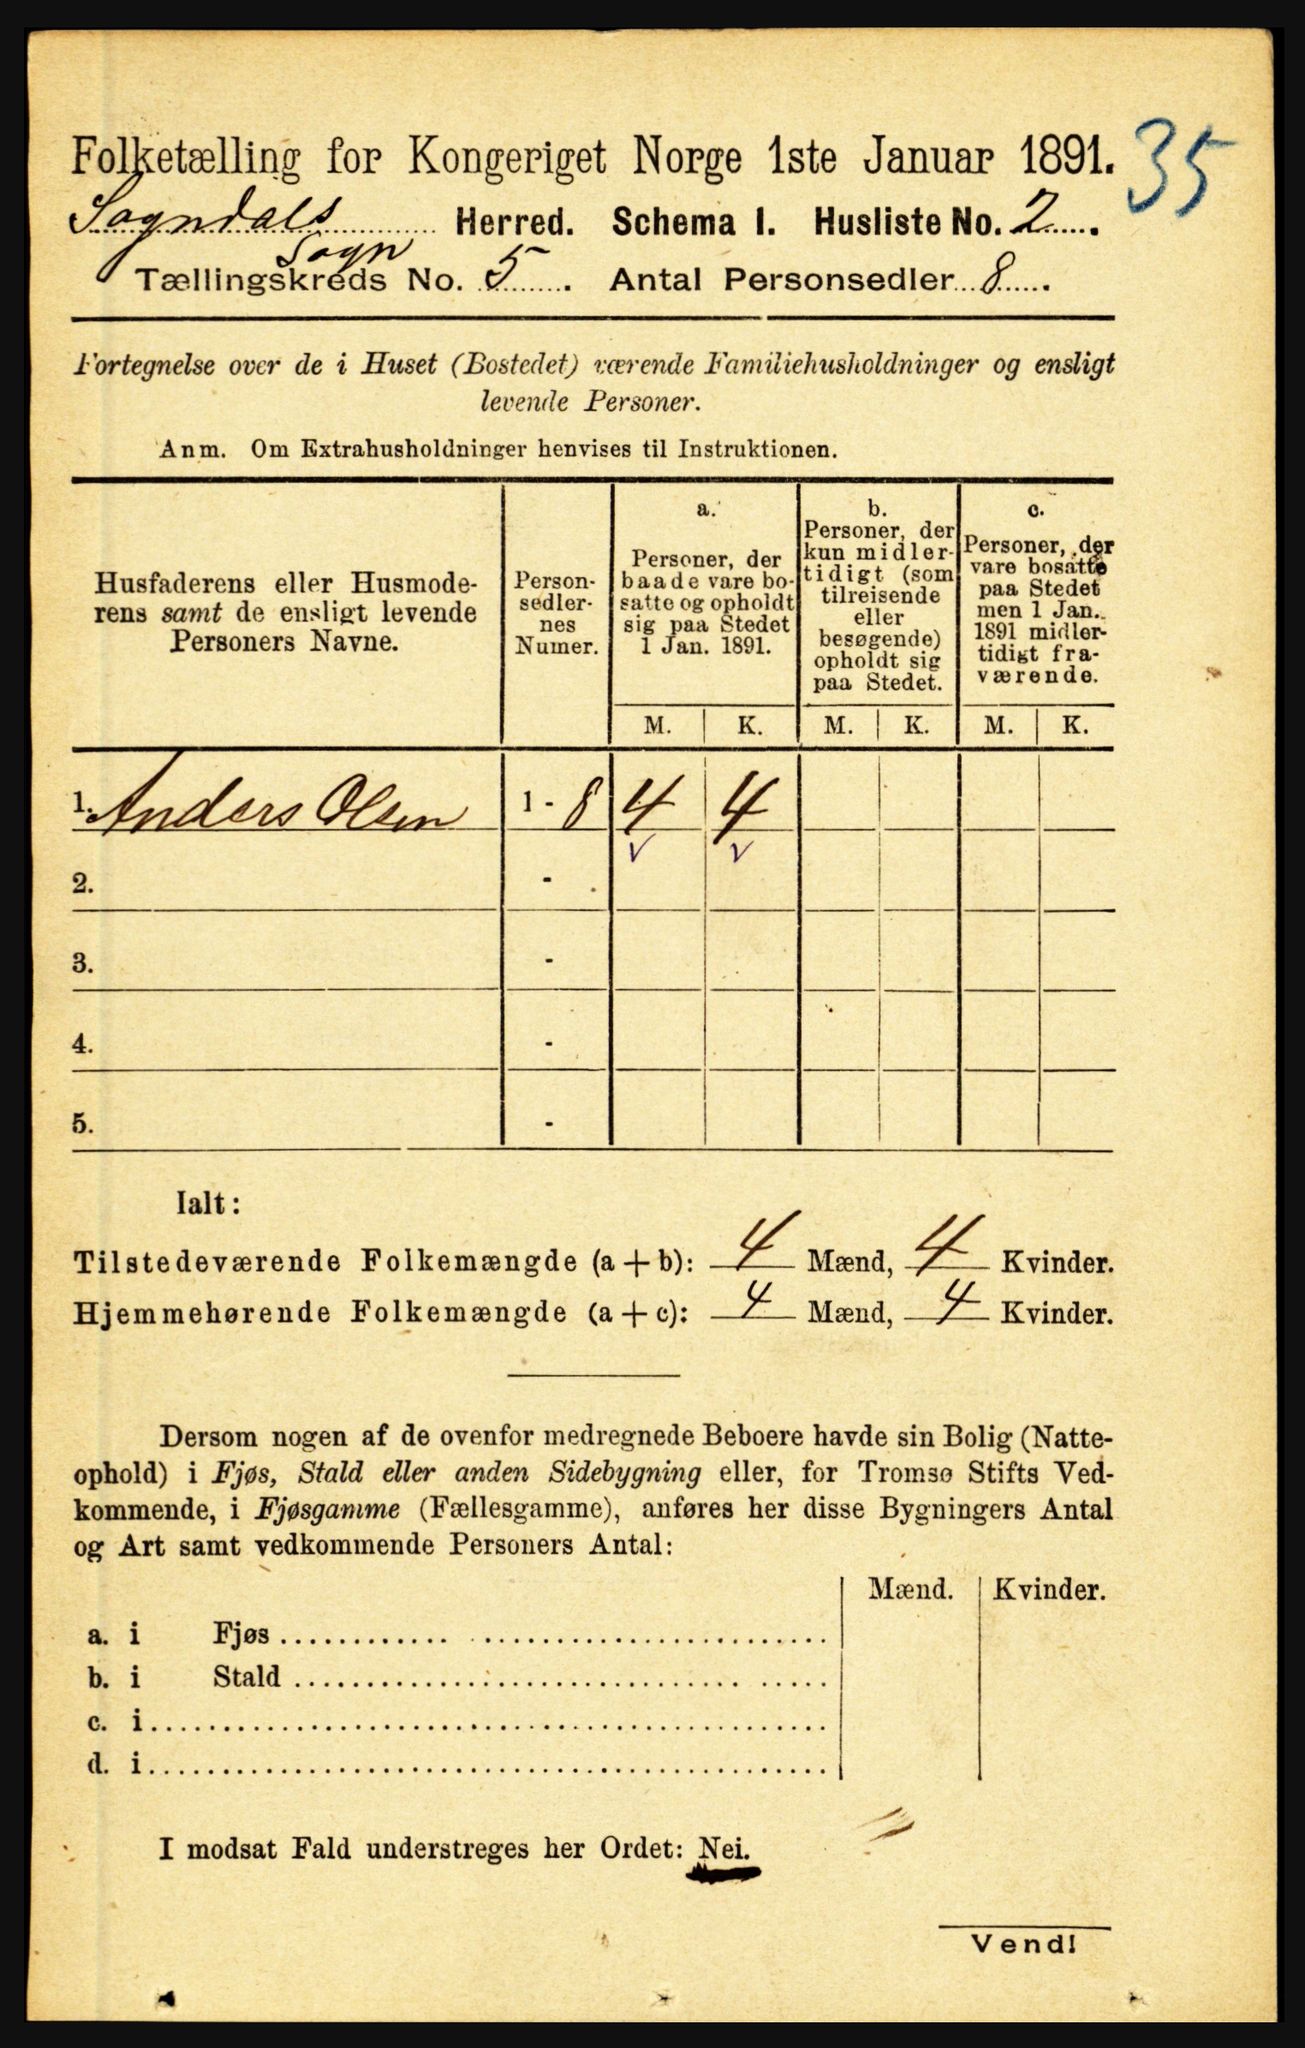 Folketælling for Kongeriget Norge 1ste Januar 1891.
35
Sogndals Herred. Schema I. Husliste No. 2.
Sogn
Tællingskreds No. 5. Antal Personsedler 8.
Fortegnelse over de i Huset (Bostedet) værende Familiehusholdninger og ensligt
levende Personer.
Anm. Om Extrahusholdninger henvises til Instruktionen.
Husfaderens eller Husmode-
rens samt de ensligt levende
Personers Navne.
Person-
sedler-
nes
Numer.
a.
Personer, der
baade vare bo-
satte og opholdt
sig paa Stedet
1 Jan. 1891.
b.
Personer, der
kun midler-
tidigt (som
tilreisende
eller
besøgende)
opholdt sig
paa Stedet.
c.
Personer, der
vare bosatte
paa Stedet
men 1 Jan.
1891 midler-
tidigt fra-
værende.
M. K. M. K. M. K.
1. Anders Olsen 1 - 8 4 4
v v
2. -
3. -
4. -
5. -
Ialt:
Tilstedeværende Folkemængde (a + b): 4 Mænd, 4 Kvinder.
Hjemmehørende Folkemængde (a + c): 4 Mænd, 4 Kvinder.
Dersom nogen af de ovenfor medregnede Beboere havde sin Bolig (Natte-
ophold) i Fjøs, Stald eller anden Sidebygning eller, for Tromsø Stifts Ved-
kommende, i Fjøsgamme (Fællesgamme), anføres her disse Bygningers Antal
og Art samt vedkommende Personers Antal:
Mænd. Kvinder.
a. i Fjøs
b. i Stald
c. i
d. i
I modsat Fald understreges her Ordet: Nei.
Vend!